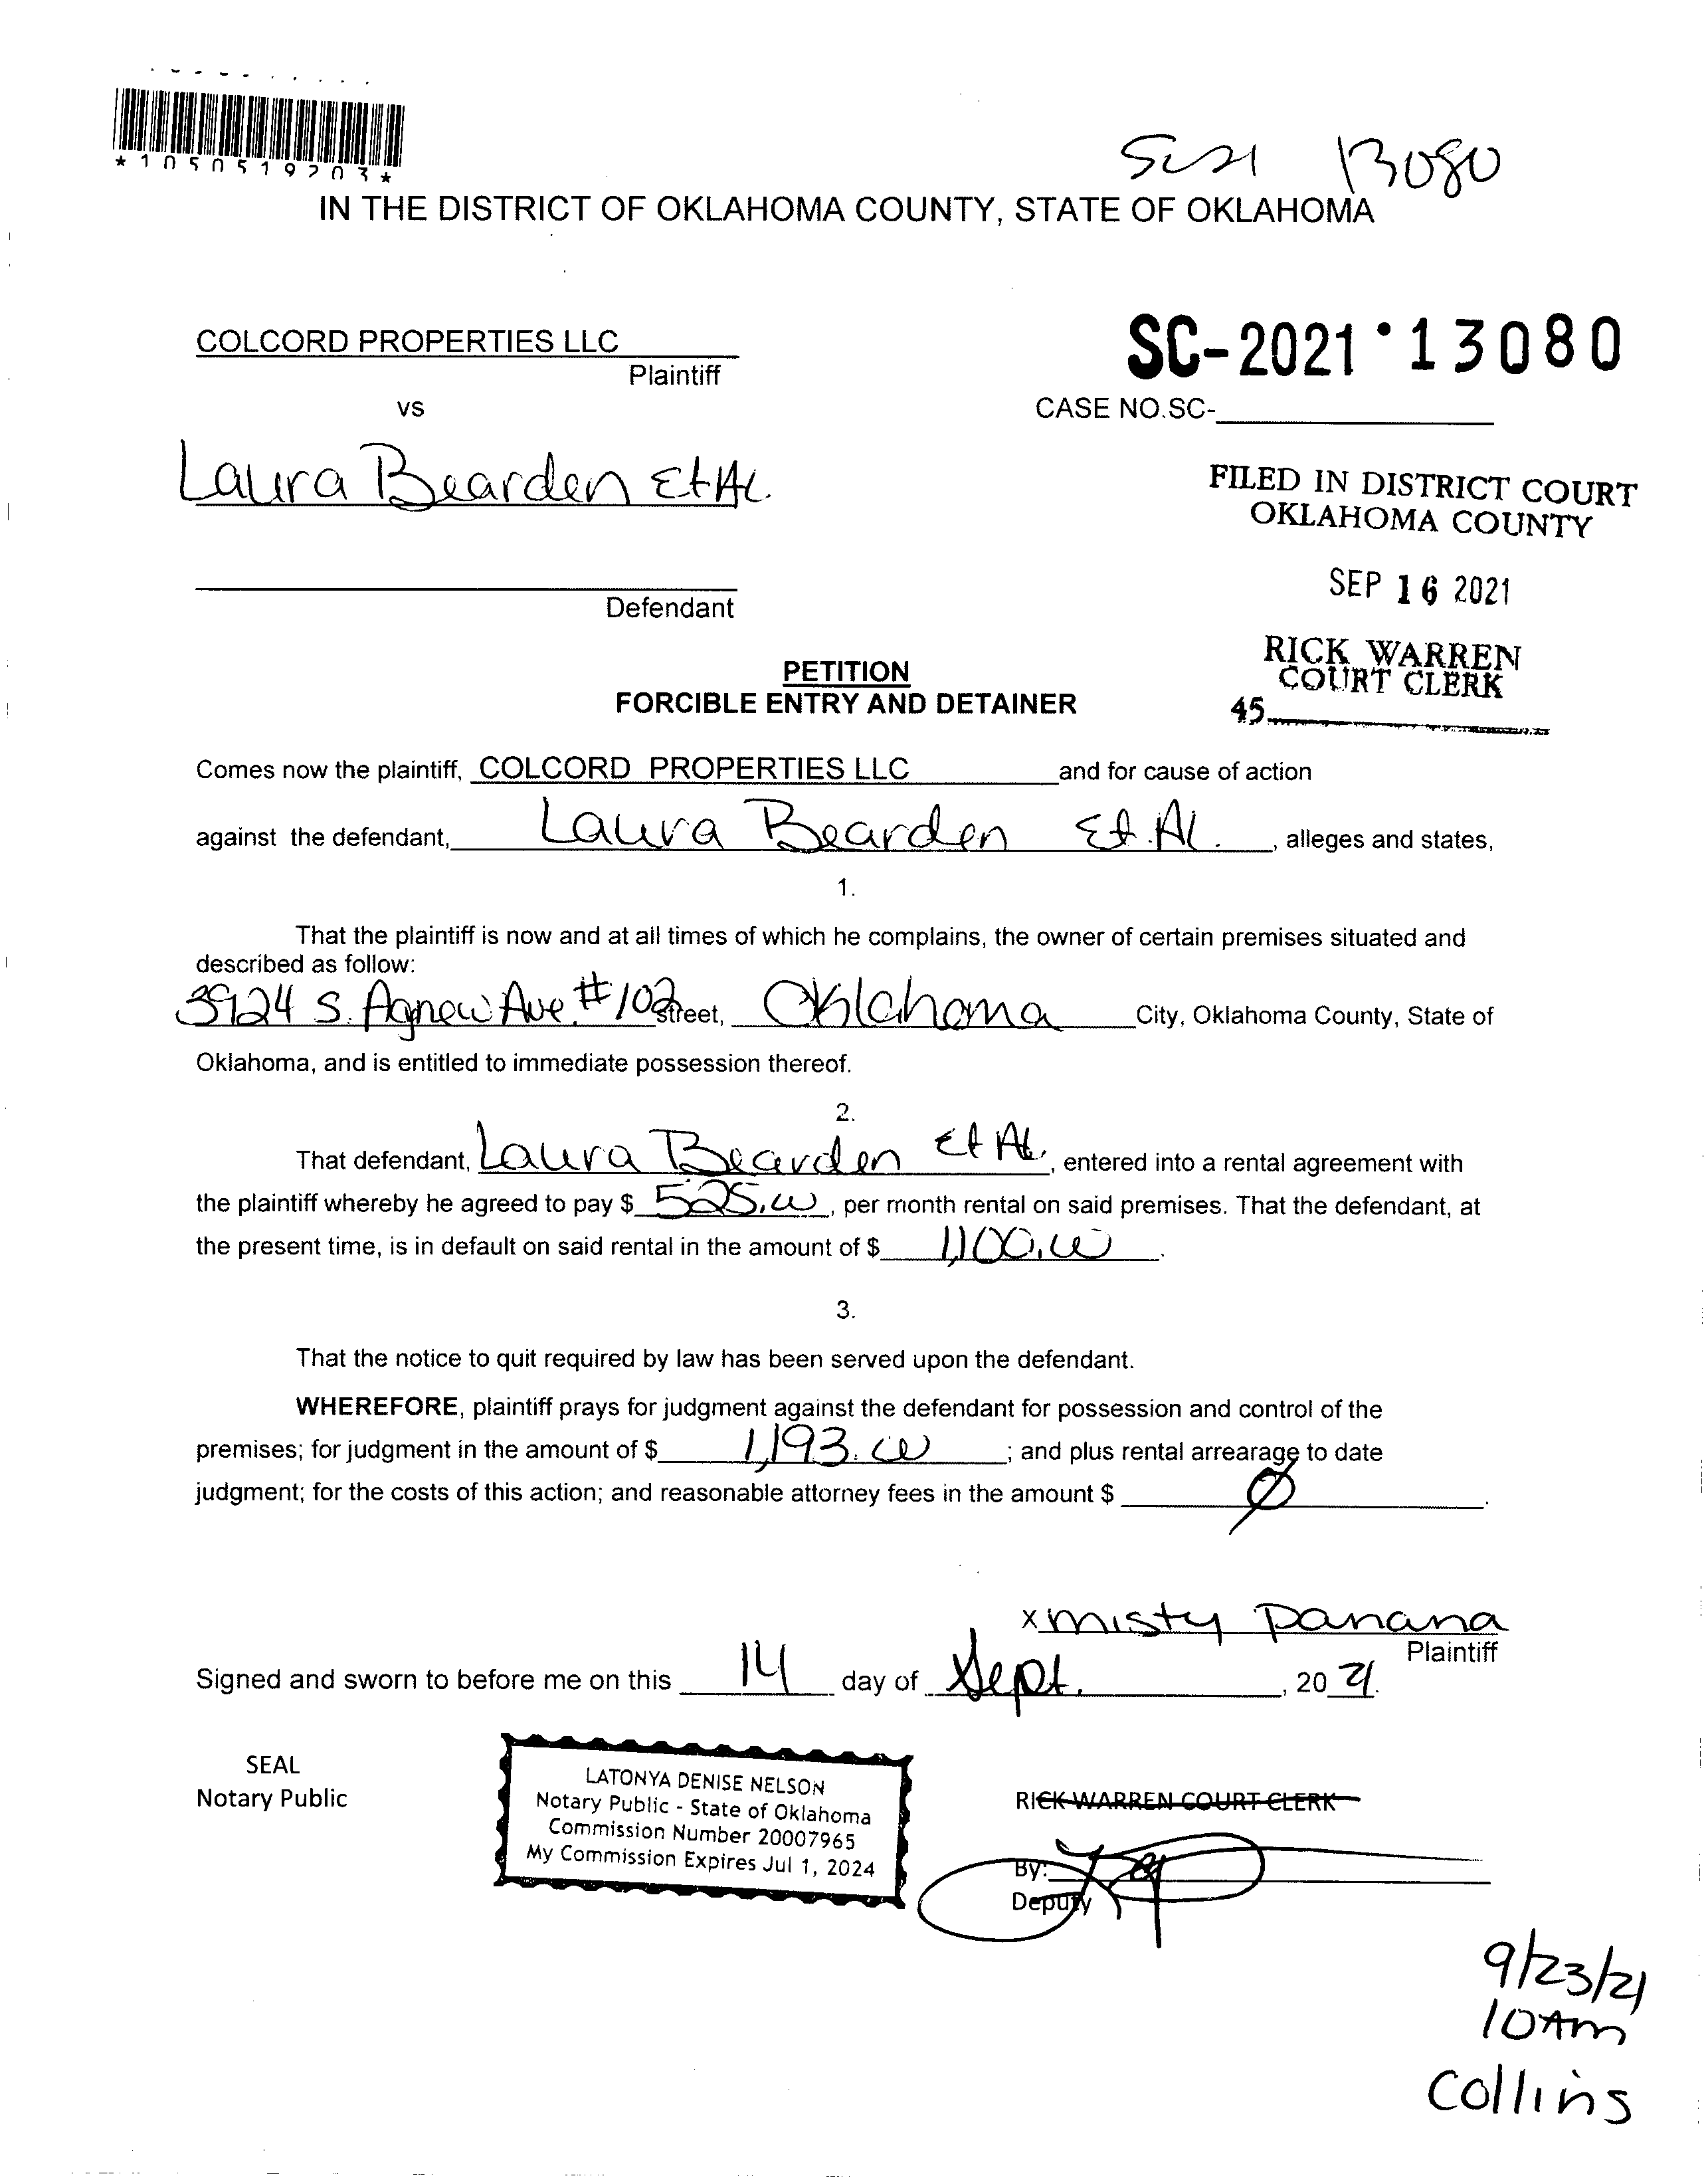 *1050519203*
SC21 13080
IN THE DISTRICT OF OKLAHOMA COUNTY, STATE OF OKLAHOMA
COLCORD PROPERTIES LLC
Plaintiff
SC-2021 • 13080
vs
CASE NO.SC-
Laura Bearden Et Al.
FILED IN DISTRICT COURT
OKLAHOMA COUNTY
SEP 16 2021
Defendant
RICK WARREN
COURT CLERK
45
PETITION
FORCIBLE ENTRY AND DETAINER
Comes now the plaintiff, COLCORD PROPERTIES LLC and for cause of action
against the defendant, Laura Bearden Et. Al. , alleges and states,
1.
That the plaintiff is now and at all times of which he complains, the owner of certain premises situated and
described as follow:
3924 S. Agnew Ave. #102 street, Oklahoma City, Oklahoma County, State of
Oklahoma, and is entitled to immediate possession thereof.
2.
That defendant, Laura Bearden Et Al. , entered into a rental agreement with
the plaintiff whereby he agreed to pay $ 525.00 , per month rental on said premises. That the defendant, at
the present time, is in default on said rental in the amount of $ 1,100.00 .
3.
That the notice to quit required by law has been served upon the defendant.
WHEREFORE, plaintiff prays for judgment against the defendant for possession and control of the
premises; for judgment in the amount of $ 1,193.00 ; and plus rental arrearage to date
judgment; for the costs of this action; and reasonable attorney fees in the amount $ Ø .
x misty panana
Plaintiff
Signed and sworn to before me on this 14 day of Sept. , 20 21.
SEAL
Notary Public
LATONYA DENISE NELSON
Notary Public - State of Oklahoma
Commission Number 20007965
My Commission Expires Jul 1, 2024
RICK WARREN COURT CLERK
By:
Deputy
9/23/21
10 Am
Collins